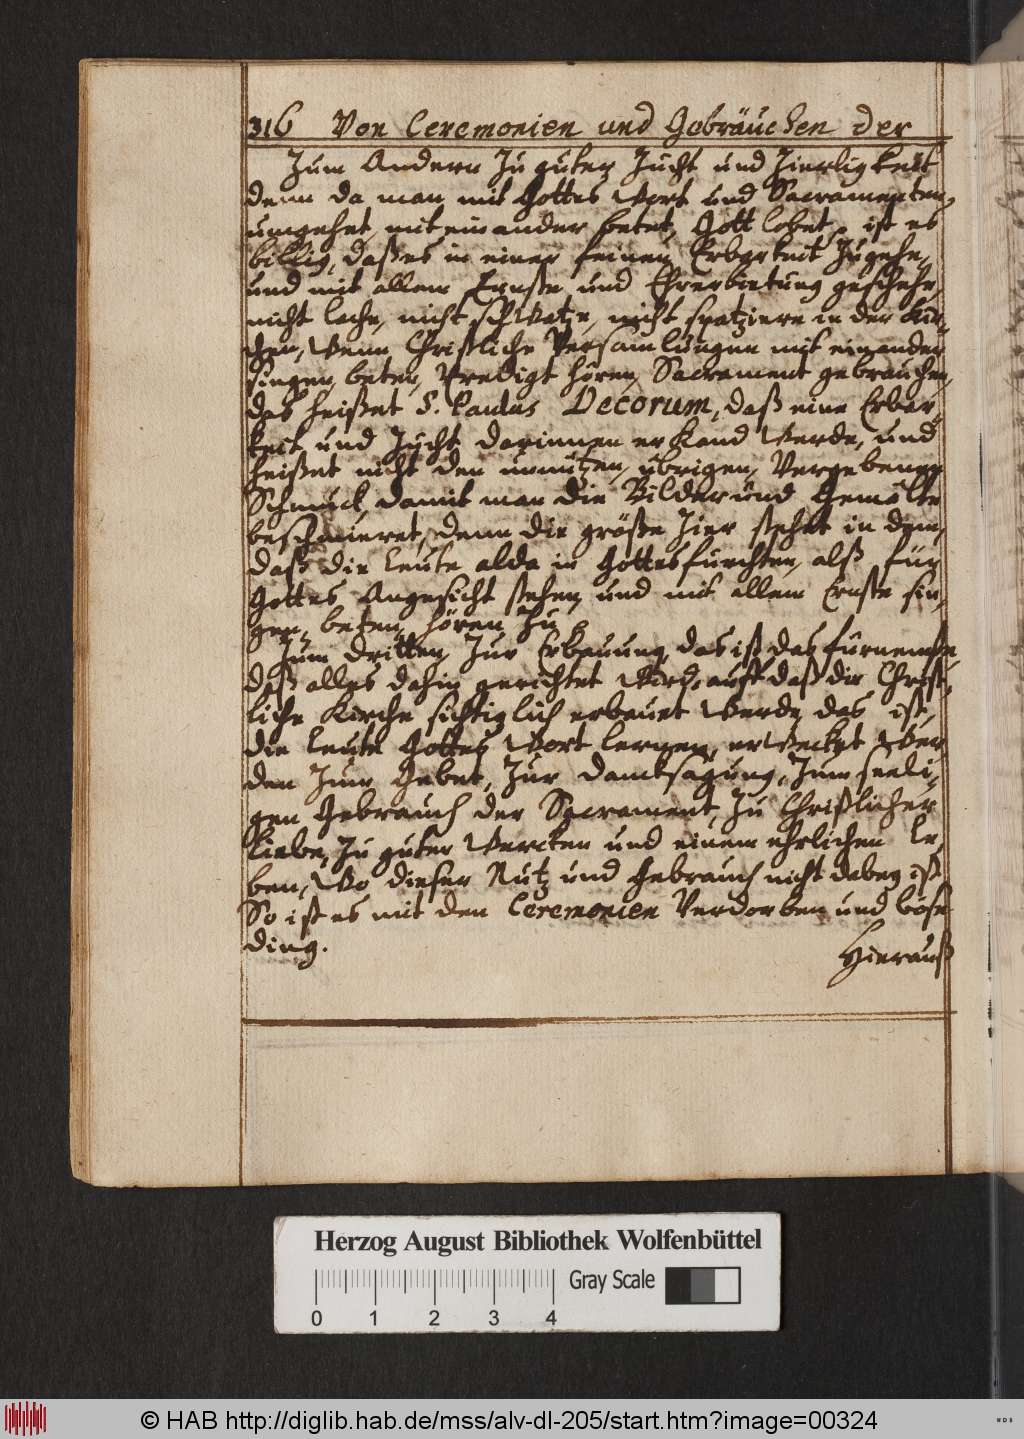 316 Von Ceremonien und Gebräuchen der
Zum Andern Zu guter Zucht und Zierligkeit
denn da man mit Gottes Wort und Sacramenten,
umgehet, mit einander betet, Gott lobet, ist es
billig, daß es in einer feinen Erbarkeit Zugehe,
und mit allem Ernste und Ehrerbietung geschehe,
nicht lache, nicht schwatze, nicht spatziere in der Kir-
chen, Wenn Christliche Versamlungen mit einander
singen, beten, Predigt hören, Sacrament gebrauchen,
das heißet S. Paulus Decorum, daß eine Erbar-
keit und Zucht darinnen erKand Werde, und
heißet nicht den unnutzen, übrigen, Vergebenen
Schmuck, damit man die Bilder und Gemälte
beschmieret, denn die größte Zier stehet in dem,
daß die Leute alda in Gottesfurchten, alß für
Gottes Angesicht stehen, und mit allem Ernste sin-
gen, beten, hören zu.
Zum dritten, Zur Erbauung, das ist das fürnemste,
daß alles dahin gerichtet Wird, auff daß die Christ-
liche Kirche sichtiglich erbauet Werde, das ist,
die Leute Gottes Wort lernen, erWeckt Wer
den Zum Gebet, Zur Danksagung, Zum seeli-
gen Gebrauch der Sacrament, Zu Christlicher
Liebe, Zu guter Wercken und einem ehrlichen Le-
ben, Wo dieser Nutz und Gebrauch nicht dabey ist
So ist es mit den Ceremonien Verdorben und böse
ding.
Hierauß
Herzog August Bibliothek Wolfenbüttel
Gray Scale
0 1 2 3 4
© HAB http://diglib.hab.de/mss/alv-dl-205/start.htm?image=00324